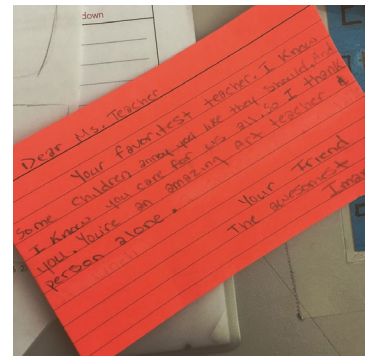 down
Dear Ms. Teacher
Your favoritest teacher. I know
some children annoy you like they should. And
I know you care for us all. So I thank
you. You're an amazing Art teacher &
person alone.
Your Friend
The awesomest
Imar